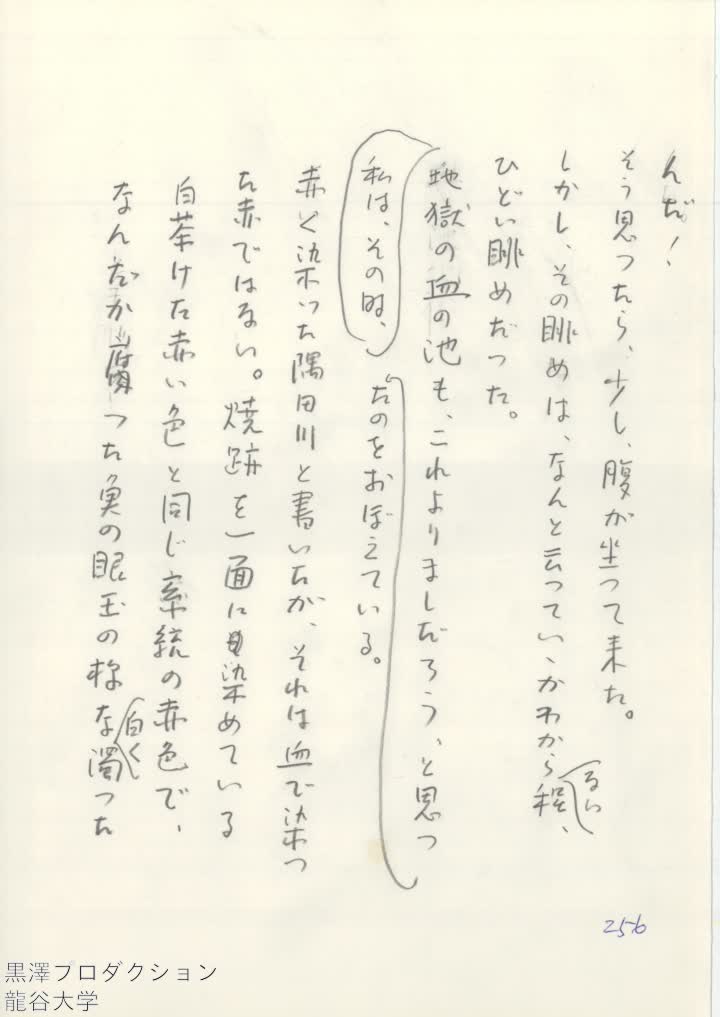 んだ！
そう思つたら、少し、腹が坐つて来た。
しかし、その眺めは、なんと云つていゝかわからない程、
ひどい眺めだつた。
地獄の血の池も、これよりましだろう、と思つ
私は、その時、
たのをおぼえている。
赤く染つた隅田川と書いたが、それは血で染つ
た赤ではない。焼跡を一面に染めている
白茶けた赤い色と同じ系統の赤色で、
なんだか腐つた魚の眼玉の様な白く濁つた
256
黒澤プロダクション
龍谷大学